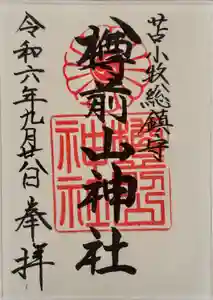 苫小牧総鎮守
樽前山神社
令和六年九月廿八日 奉拝